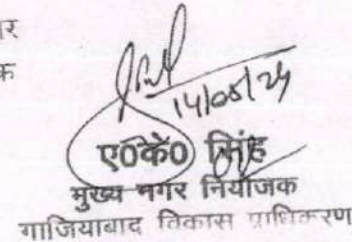 र
क
14/05/24
ए0के0 सिंह
मुख्य नगर नियोजक
गाजियाबाद विकास प्राधिकरण